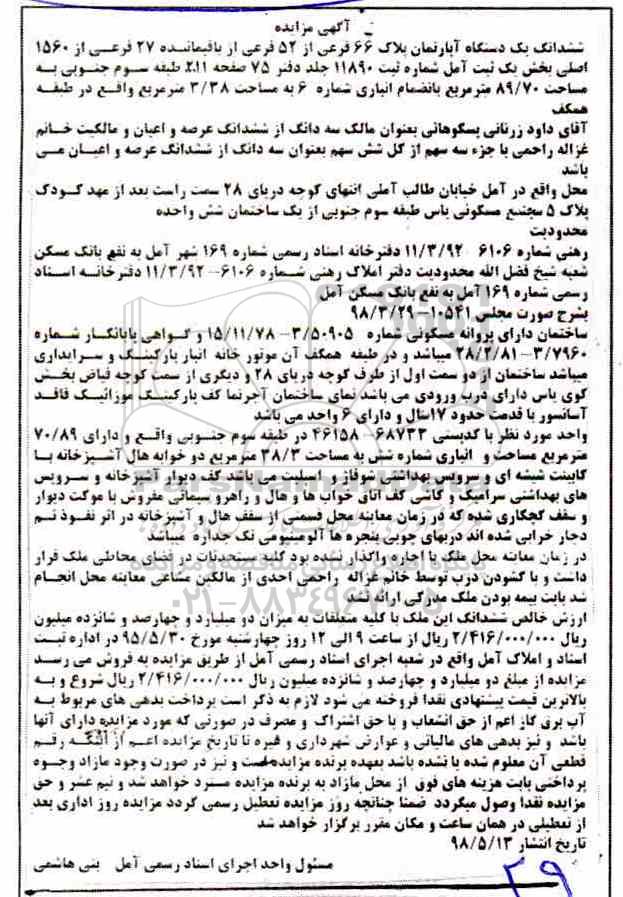 آگهی مزایده
ششدانگ یک دستگاه آپارتمان پلاک ۶۶ فرعی از ۵۲ فرعی از باقیمانده ۲۷ فرعی از ۱۵۶۰
اصلی بخش یک ثبت آمل شماره ثبت ۱۱۸۹۰ جلد دفتر ۷۵ صفحه ۲۱۱ طبقه سوم جنوبی به
مساحت ۸۹/۷۰ مترمربع بانضمام انباری شماره ۶ به مساحت ۳/۳۸ مترمربع واقع در طبقه
همکف
آقای داود زرتانی پسکوهانی بعنوان مالک سه دانگ از ششدانگ عرصه و اعیان و مالکیت خانم
غزاله راحمی با جزء سه سهم از کل شش سهم بعنوان سه دانگ از ششدانگ عرصه و اعیان می
باشد
محل واقع در آمل خیابان طالب آملی انتهای کوچه دریای ۲۸ سمت راست بعد از مهد کودک
پلاک ۵ مجتمع مسکونی یاس طبقه سوم جنوبی از یک ساختمان شش واحده
محدودیت
رهنی شماره ۶۱۰۶ ۱۱/۳/۹۲ دفترخانه اسناد رسمی شماره ۱۶۹ شهر آمل به نفع بانک مسکن
شعبه شیخ فضل الله محدودیت دفتر املاک رهنی شماره ۶۱۰۶–۱۱/۳/۹۲ دفترخانه اسناد
رسمی شماره ۱۶۹ آمل به نفع بانک مسکن آمل
بشرح صورت مجلس ۱۰۵۴۱–۹۸/۳/۲۹
ساختمان دارای پروانه مسکونی شماره ۳/۵۰۹۰۵–۱۵/۱۱/۷۸ و گواهی پایانکار شماره
۳/۷۹۶۰–۲۸/۲/۸۱ میباشد و در طبقه همکف آن موتور خانه انبار پارکینگ و سرایداری
میباشد ساختمان از دو سمت اول از طرف کوچه دریای ۲۸ و دیگری از سمت کوچه فیاض بخش
کوی یاس دارای درب ورودی می باشد نمای ساختمان آجرنما کف پارکینگ موزائیک فاقد
آسانسور با قدمت حدود ۱۷سال و دارای ۶ واحد می باشد
واحد مورد نظر با کدپستی ۶۸۷۳۳–۴۶۱۵۸ در طبقه سوم جنوبی واقع و دارای ۷۰/۸۹
مترمربع مساحت و انباری شماره شش به مساحت ۳۸/۳ مترمربع دو خوابه هال آشپزخانه با
کابینت شیشه ای و سرویس بهداشتی شوفاژ و اسپلیت می باشد کف دیوار آشپزخانه و سرویس
های بهداشتی سرامیک و کاشی کف اتاق خواب ها و هال و راهرو سیمانی مفروش با موکت دیوار
و سقف گچکاری شده که در زمان معاینه محل قسمتی از سقف هال و آشپزخانه در اثر نفوذ نم
دچار خرابی شده اند دربهای چوبی پنجره ها آلومینیومی تک جداره میباشد
در زمان معاینه محل ملک با اجاره واگذار نشده بود کلیه مستحدثات در فضای محاطی ملک قرار
داشت و با گشودن درب توسط خانم غزاله راحمی احدی از مالکین مشاعی معاینه محل انجام
شد بابت بیمه بودن ملک مدرکی ارائه نشد
ارزش خالص ششدانگ این ملک با کلیه متعلقات به میزان دو میلیارد و چهارصد و شانزده میلیون
ریال ۲/۴۱۶/۰۰۰/۰۰۰ ریال از ساعت ۹ الی ۱۲ روز چهارشنبه مورخ ۹۵/۵/۳۰ در اداره ثبت
اسناد و املاک آمل واقع در شعبه اجرای اسناد رسمی آمل از طریق مزایده به فروش می رسد
مزایده از مبلغ دو میلیارد و چهارصد و شانزده میلیون ریال ۲/۴۱۶/۰۰۰/۰۰۰ ریال شروع و به
بالاترین قیمت پیشنهادی نقدا فروخته می شود لازم به ذکر است پرداخت بدهی های مربوط به
آب برق گاز اعم از حق انشعاب و یا حق اشتراک و مصرف در صورتی که مورد مزایده دارای آنها
باشد و نیز بدهی های مالیاتی و عوارض شهرداری و غیره تا تاریخ مزایده اعم از اینکه رقم
قطعی آن معلوم شده یا نشده باشد بعهده برنده مزایده است و نیز در صورت وجود مازاد وجوه
پرداختی بابت هزینه های فوق از محل مازاد به برنده مزایده مسترد خواهد شد و نیم عشر و حق
مزایده نقدا وصول میگردد ضمنا چنانچه روز مزایده تعطیل رسمی گردد مزایده روز اداری بعد
از تعطیلی در همان ساعت و مکان مقرر برگزار خواهد شد
تاریخ انتشار ۹۸/۵/۱۳
مسئول واحد اجرای اسناد رسمی آمل بنی هاشمی
۲۹